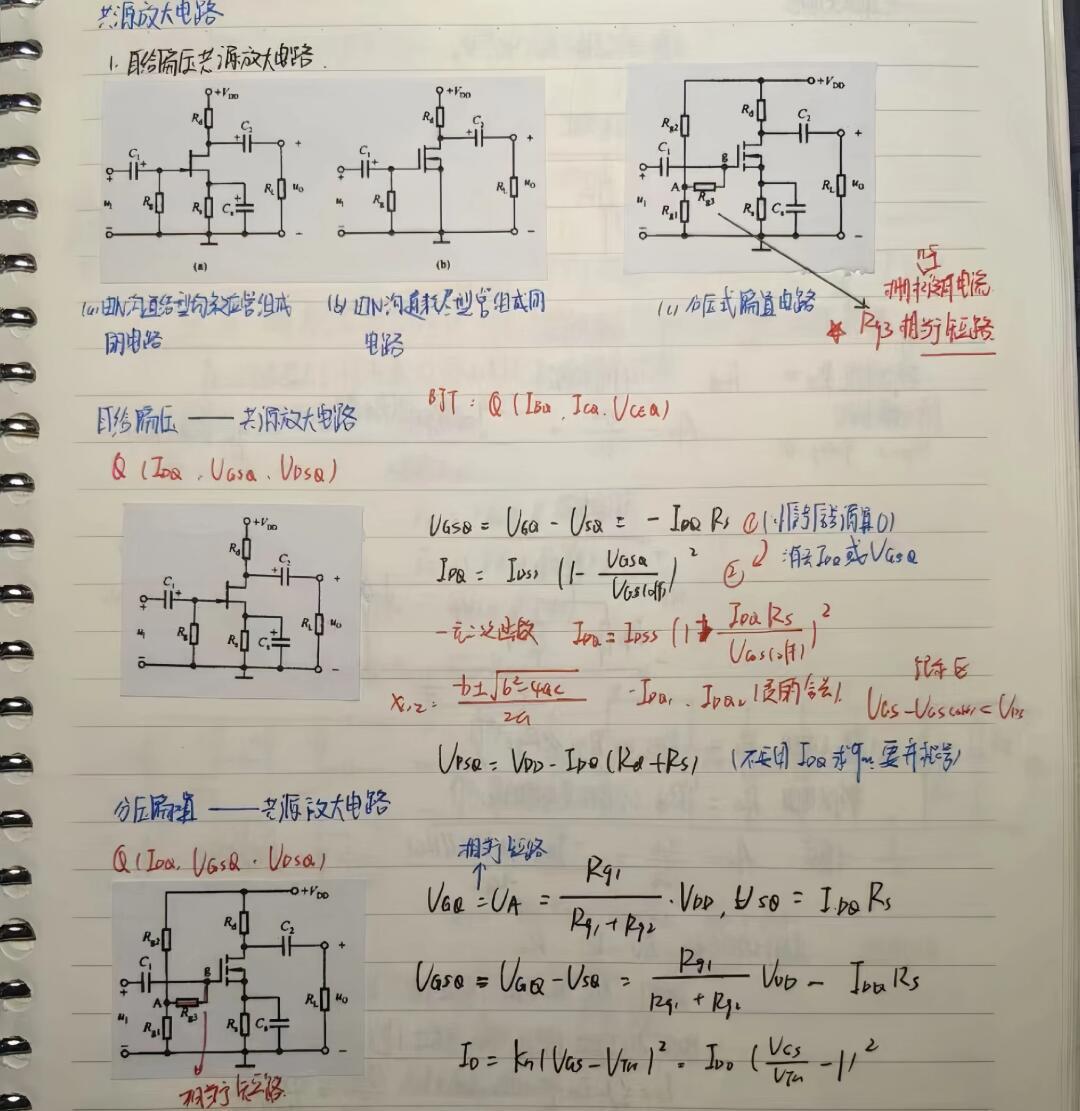 共源放大电路
1. 自给偏压共源放大电路.
+VDD
Rd
C1
C2
Rg
Rs
Cs
RL
uI
uO
(a)
+VDD
Rd
C1
C2
Rg
RL
uI
uO
(b)
+VDD
Rg2
Rd
C1
C2
g
A
Rg3
Rg1
Rs
Cs
RL
uI
uO
(a) 由N沟道结型场效应管组成
的电路
(b) 由N沟道耗尽型管组成的
电路
(c) 分压式偏置电路
Rg3 相当短路
BJT: Q (IBQ, ICQ, UCEQ)
自给偏压 —— 共源放大电路
Q (IDQ, UGSQ, UDSQ)
+VDD
Rd
C1
C2
Rg
Rs
Cs
RL
uI
uO
UGSQ = UGQ - USQ = - IDQ Rs ①
IDQ = IDSS (1 - UGSQ/UGS(off))² ② 消去IDQ或UGSQ
一元二次函数 IDQ = IDSS (1 + IDQRs/UGS(off))²
x1,2 = (-b±√(b²-4ac))/2a IDQ1、IDQ2 (负的舍去).
UGS - UGS(off) < UDS
UDSQ = VDD - IDQ (Rd + Rs)
分压偏置 —— 共源放大电路
Q (IDQ, UGSQ, UDSQ)
相当短路
+VDD
Rg2
Rd
C1
C2
g
A
Rg3
Rg1
Rs
Cs
RL
uI
uO
相当于短路
UGQ = UA = Rg1/(Rg1 + Rg2) · VDD, USQ = IDQ Rs
UGSQ = UGQ - USQ = Rg1/(Rg1 + Rg2) VDD - IDQ Rs
ID = Kn (VGS - VTN)² = IDO (VGS/VTN - 1)²